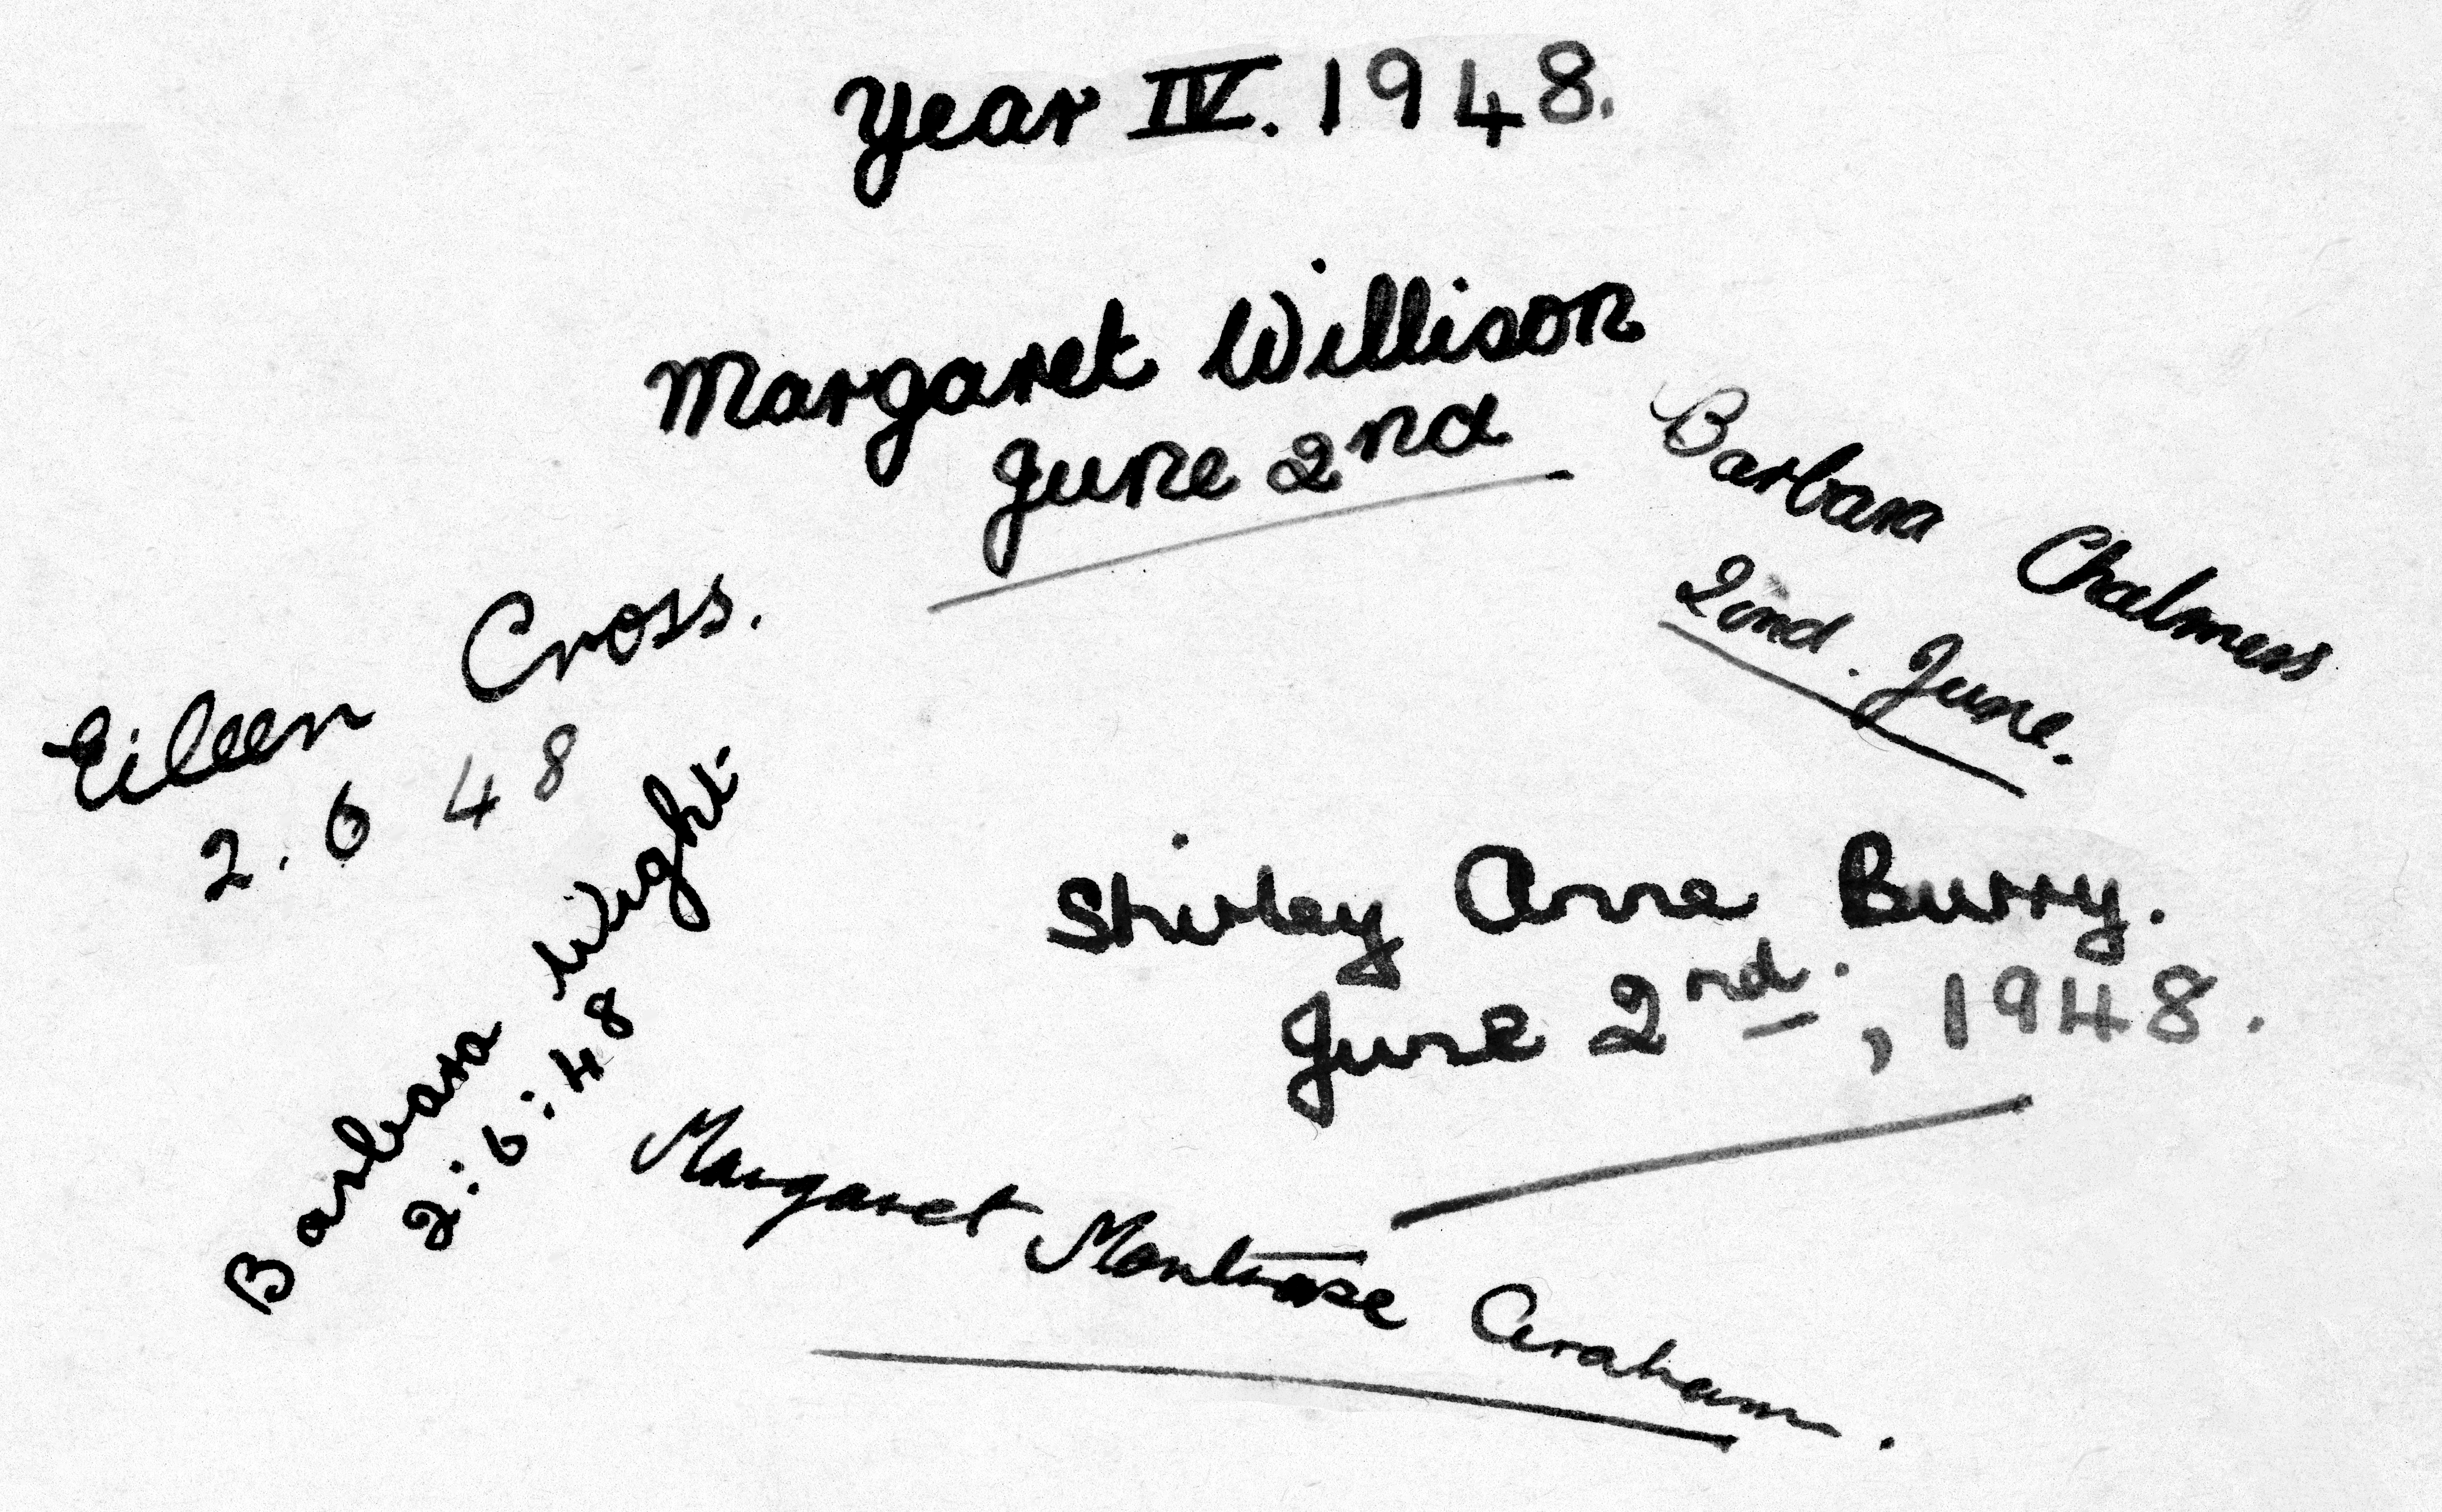 Year IV. 1948.
Margaret Willison
June 2nd
Barbara Chalmers
2nd. June.
Eileen Cross.
2. 6 48
Barbara Wight.
2:6:48
Shirley Anne Burry.
June 2nd., 1948.
Margaret Montrose Graham.